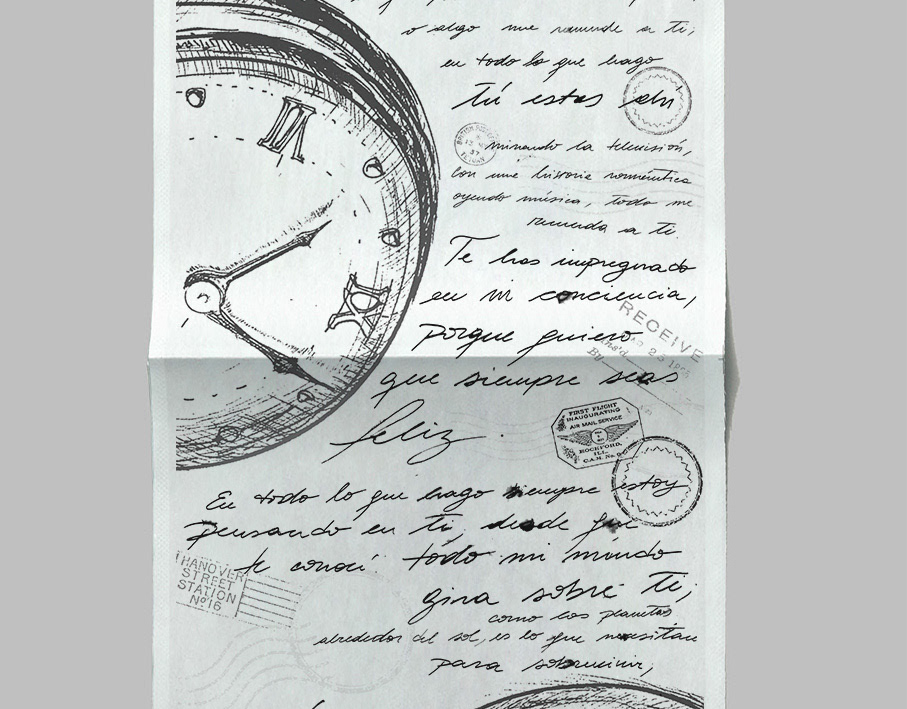 o algo me recuerde a ti;
en todo lo que hago
tú estas ahi
minando la television,
con una historia romántica
oyendo música, todo me
recuerda a ti.
Te has impregnado
en mi conciencia,
porque quiero
que siempre seas
feliz.
En todo lo que hago siempre estoy
pensando en ti, desde que
te conocí. todo mi mundo
gira sobre ti;
como los planetas
alrededor del sol, es lo que necesitan
para sobrevivir,
II
III
RECEIVE
By
FIRST FLIGHT
INAUGURATING
AIR MAIL SERVICE
ROCKFORD,
ILL.
C.A.M. No. 9
HANOVER
STREET
STATION
Nº 16